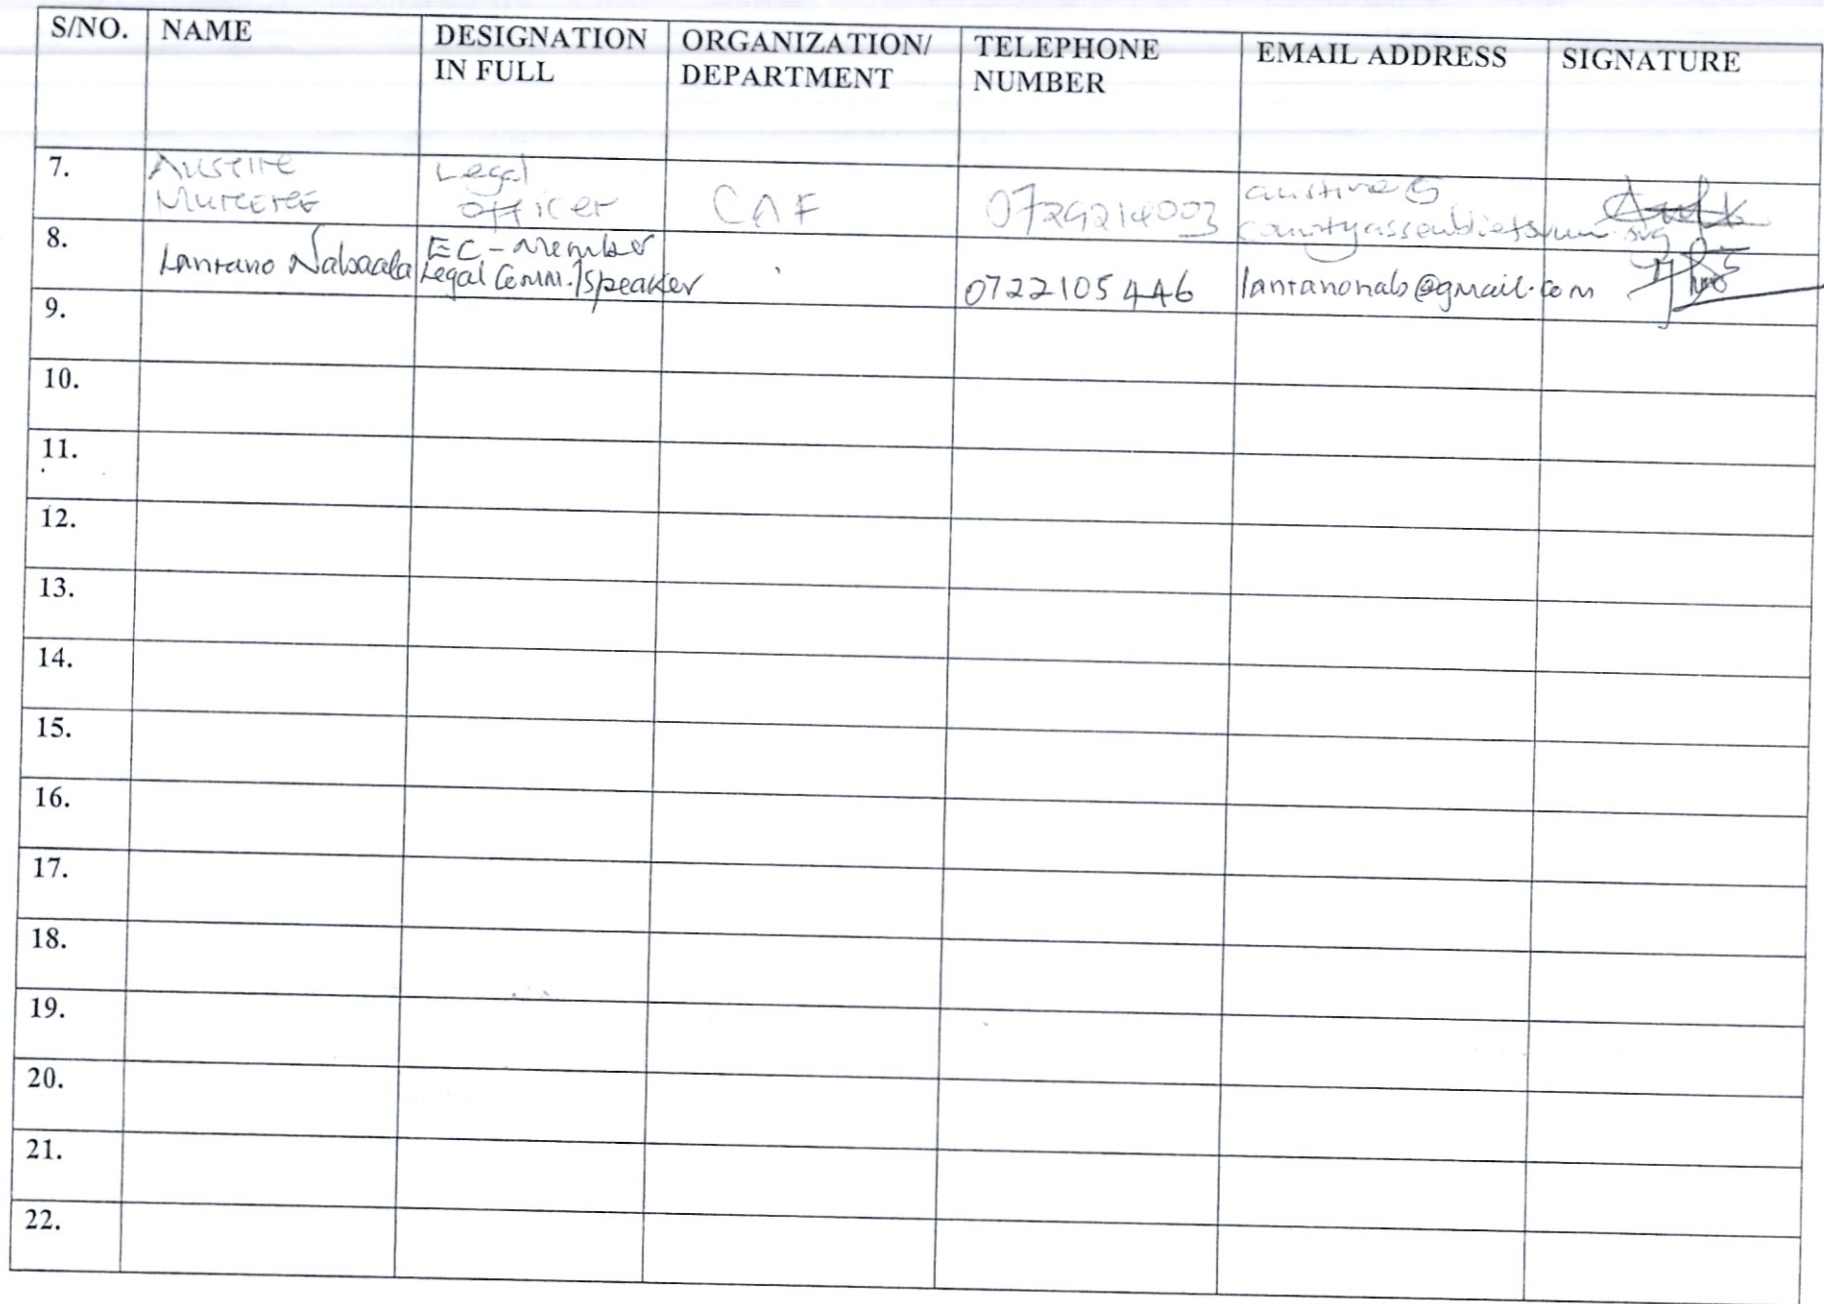 S/NO. NAME DESIGNATION IN FULL ORGANIZATION/ DEPARTMENT TELEPHONE NUMBER EMAIL ADDRESS SIGNATURE
7. Austine Legal Officer CAF 0729214003
8. Lantano Nabaala EC - Member Legal Comm./Speaker 0722105446 lantanonab@gmail.com
9.
10.
11.
12.
13.
14.
15.
16.
17.
18.
19.
20.
21.
22.